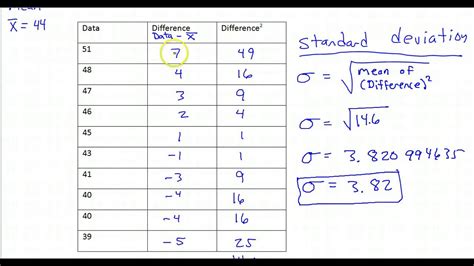 x̄ = 44
Data Difference Difference²
Data - x̄
51 7 49
48 4 16
47 3 9
46 2 4
45 1 1
43 -1 1
41 -3 9
40 -4 16
40 -4 16
39 -5 25
standard deviation
σ = √mean of (Difference)²
σ = √14.6
σ = 3.820994635
σ = 3.82